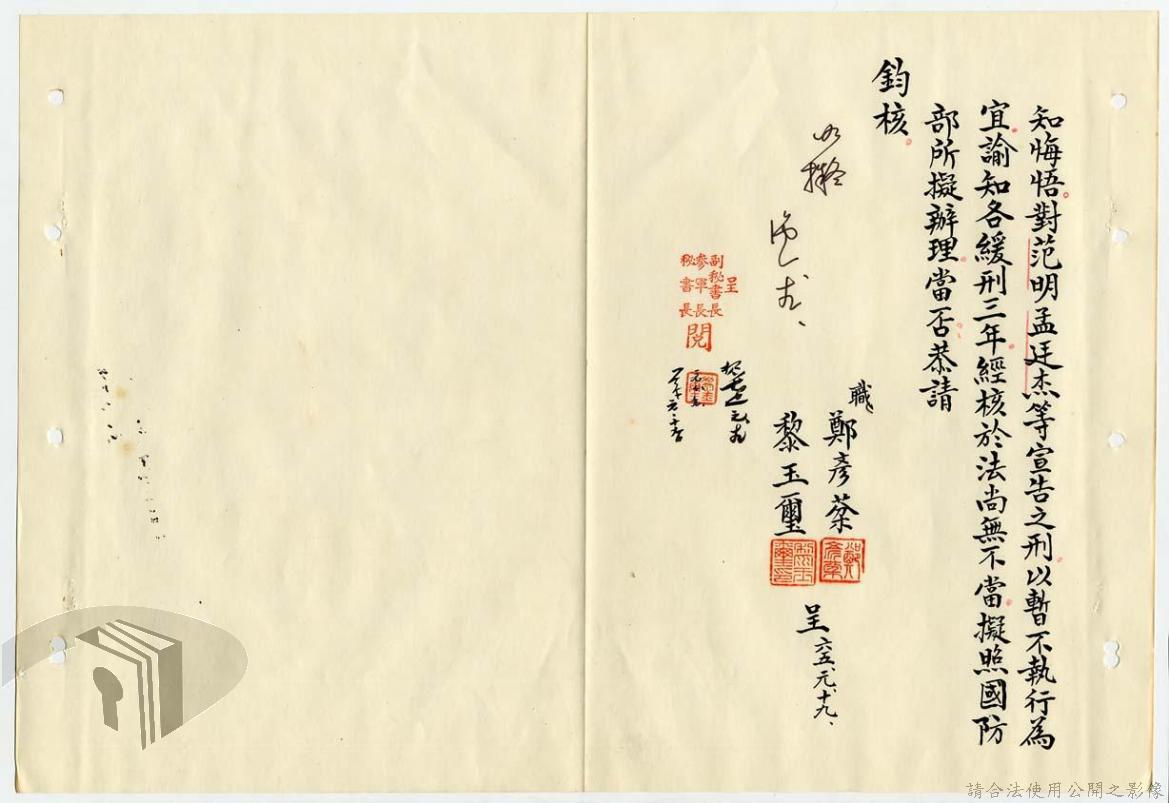 知悔悟對范明孟廷杰等宣告之刑以暫不執行為
宜諭知各緩刑三年經核於法尚無不當擬照國防
部所擬辦理當否恭請
鈞核
職
鄭彥棻
黎玉璽
呈六五、元、十九、
如擬
呈
副秘書長
參軍長
秘書長
閱
請合法使用公開之影像